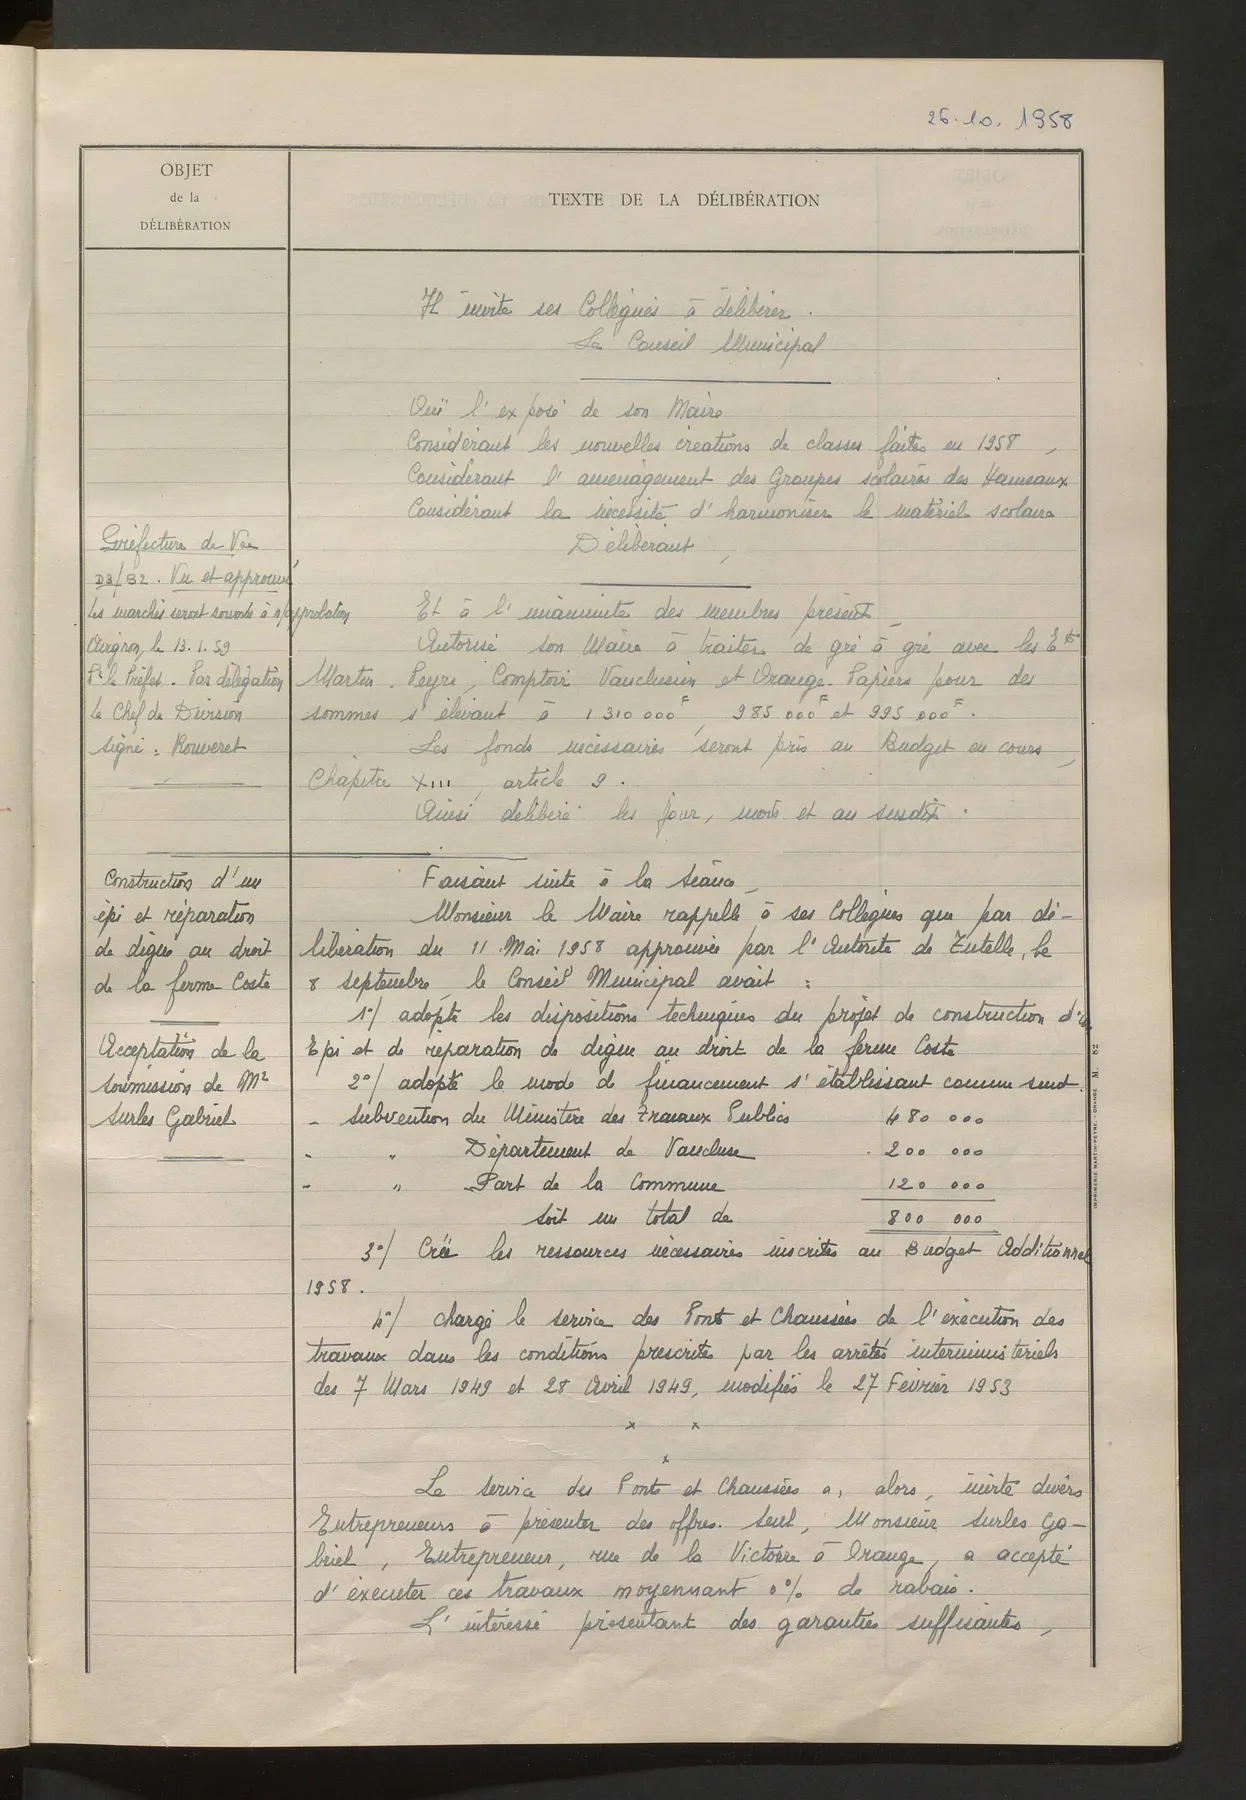 26.10.1958
OBJET
de la
DÉLIBÉRATION
TEXTE DE LA DÉLIBÉRATION
Il invite ses Collègues à délibérer.
Le Conseil Municipal
Ouï l'exposé de son Maire
Considérant les nouvelles créations de classes faites en 1958,
Considérant l'aménagement des Groupes scolaires des Hameaux
Considérant la nécessité d'harmoniser le matériel scolaire
Délibérant,
Et à l'unanimité des membres présent
Autorise son Maire à traiter de gré à gré avec les Ets
Martin-Peyre, Comptoir Vauclusien et Orange-Papiers pour des
sommes s'élevant à 1 310 000F, 985 000F et 995 000F.
Les fonds nécessaires seront pris au Budget en cours,
Chapitre XIII, article 9.
Ainsi délibéré les jour, mois et an susdits.
Préfecture de Vse
D3/B2. Vu et approuvé
Les marchés seront soumis à m/approbation
Avignon, le 13.1.59
Pr le Préfet. Par délégation
Le Chef de Division
signé : Rouveret
Construction d'un
épi et réparation
de digue au droit
de la ferme Coste
Acceptation de la
soumission de Mr
Surles Gabriel
Faisant suite à la séance,
Monsieur le Maire rappelle à ses Collègues que par dé-
libération du 11 Mai 1958 approuvée par l'Autorité de Tutelle, le
8 septembre, le Conseil Municipal avait :
1°/ adopté les dispositions techniques du projet de construction d'un
Epi et de réparation de digue au droit de la ferme Coste
2°/ adopté le mode de financement s'établissant comme suit.
- subvention du Ministère des Travaux Publics 480 000
- " Département de Vaucluse 200 000
- " Part de la Commune 120 000
soit un total de 800 000
3°/ Créé les ressources nécessaires inscrites au Budget Additionnel
1958.
4°/ chargé le service des Ponts et Chaussées de l'exécution des
travaux dans les conditions prescrites par les arrêtés interministériels
des 7 Mars 1949 et 28 Avril 1949, modifiés le 27 Février 1953
x x
x
Le service des Ponts et Chaussées a, alors, invité divers
Entrepreneurs à présenter des offres. Seul, Monsieur Surles Ga-
briel, Entrepreneur, rue de la Victoire à Orange, a accepté
d'exécuter ces travaux moyennant 0% de rabais.
L'intéressé présentant des garanties suffisantes,
IMPRIMERIE MARTIN-PEYRE - ORANGE M. 82